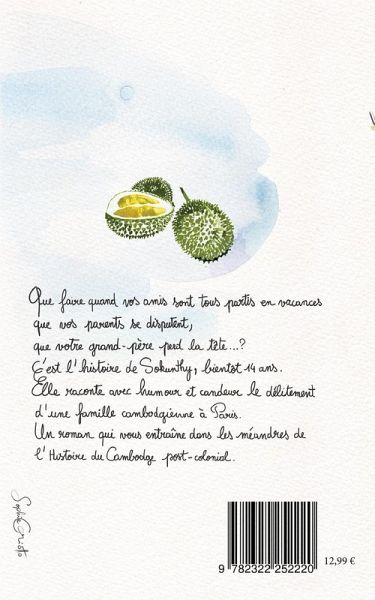 Que faire quand vos amis sont tous partis en vacances
que vos parents se disputent,
que votre grand-père perd la tête...?
C'est l'histoire de Sokunthy, bientôt 14 ans.
Elle raconte avec humour et candeur le délitement
d'une famille cambodgienne à Paris.
Un roman qui vous entraîne dans les méandres de
l'Histoire du Cambodge post-colonial.
Sophie
12,99 €
9 782322 252220